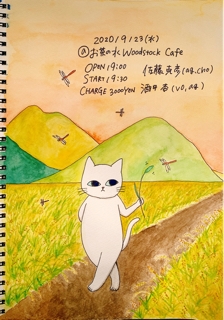 2020/9/23(水)
@お茶の水 Woodstock Cafe
OPEN 19:00
START 19:30
CHARGE 3000YEN
佐藤克彦(a.g, cho)
酒井君(vo, a.g)